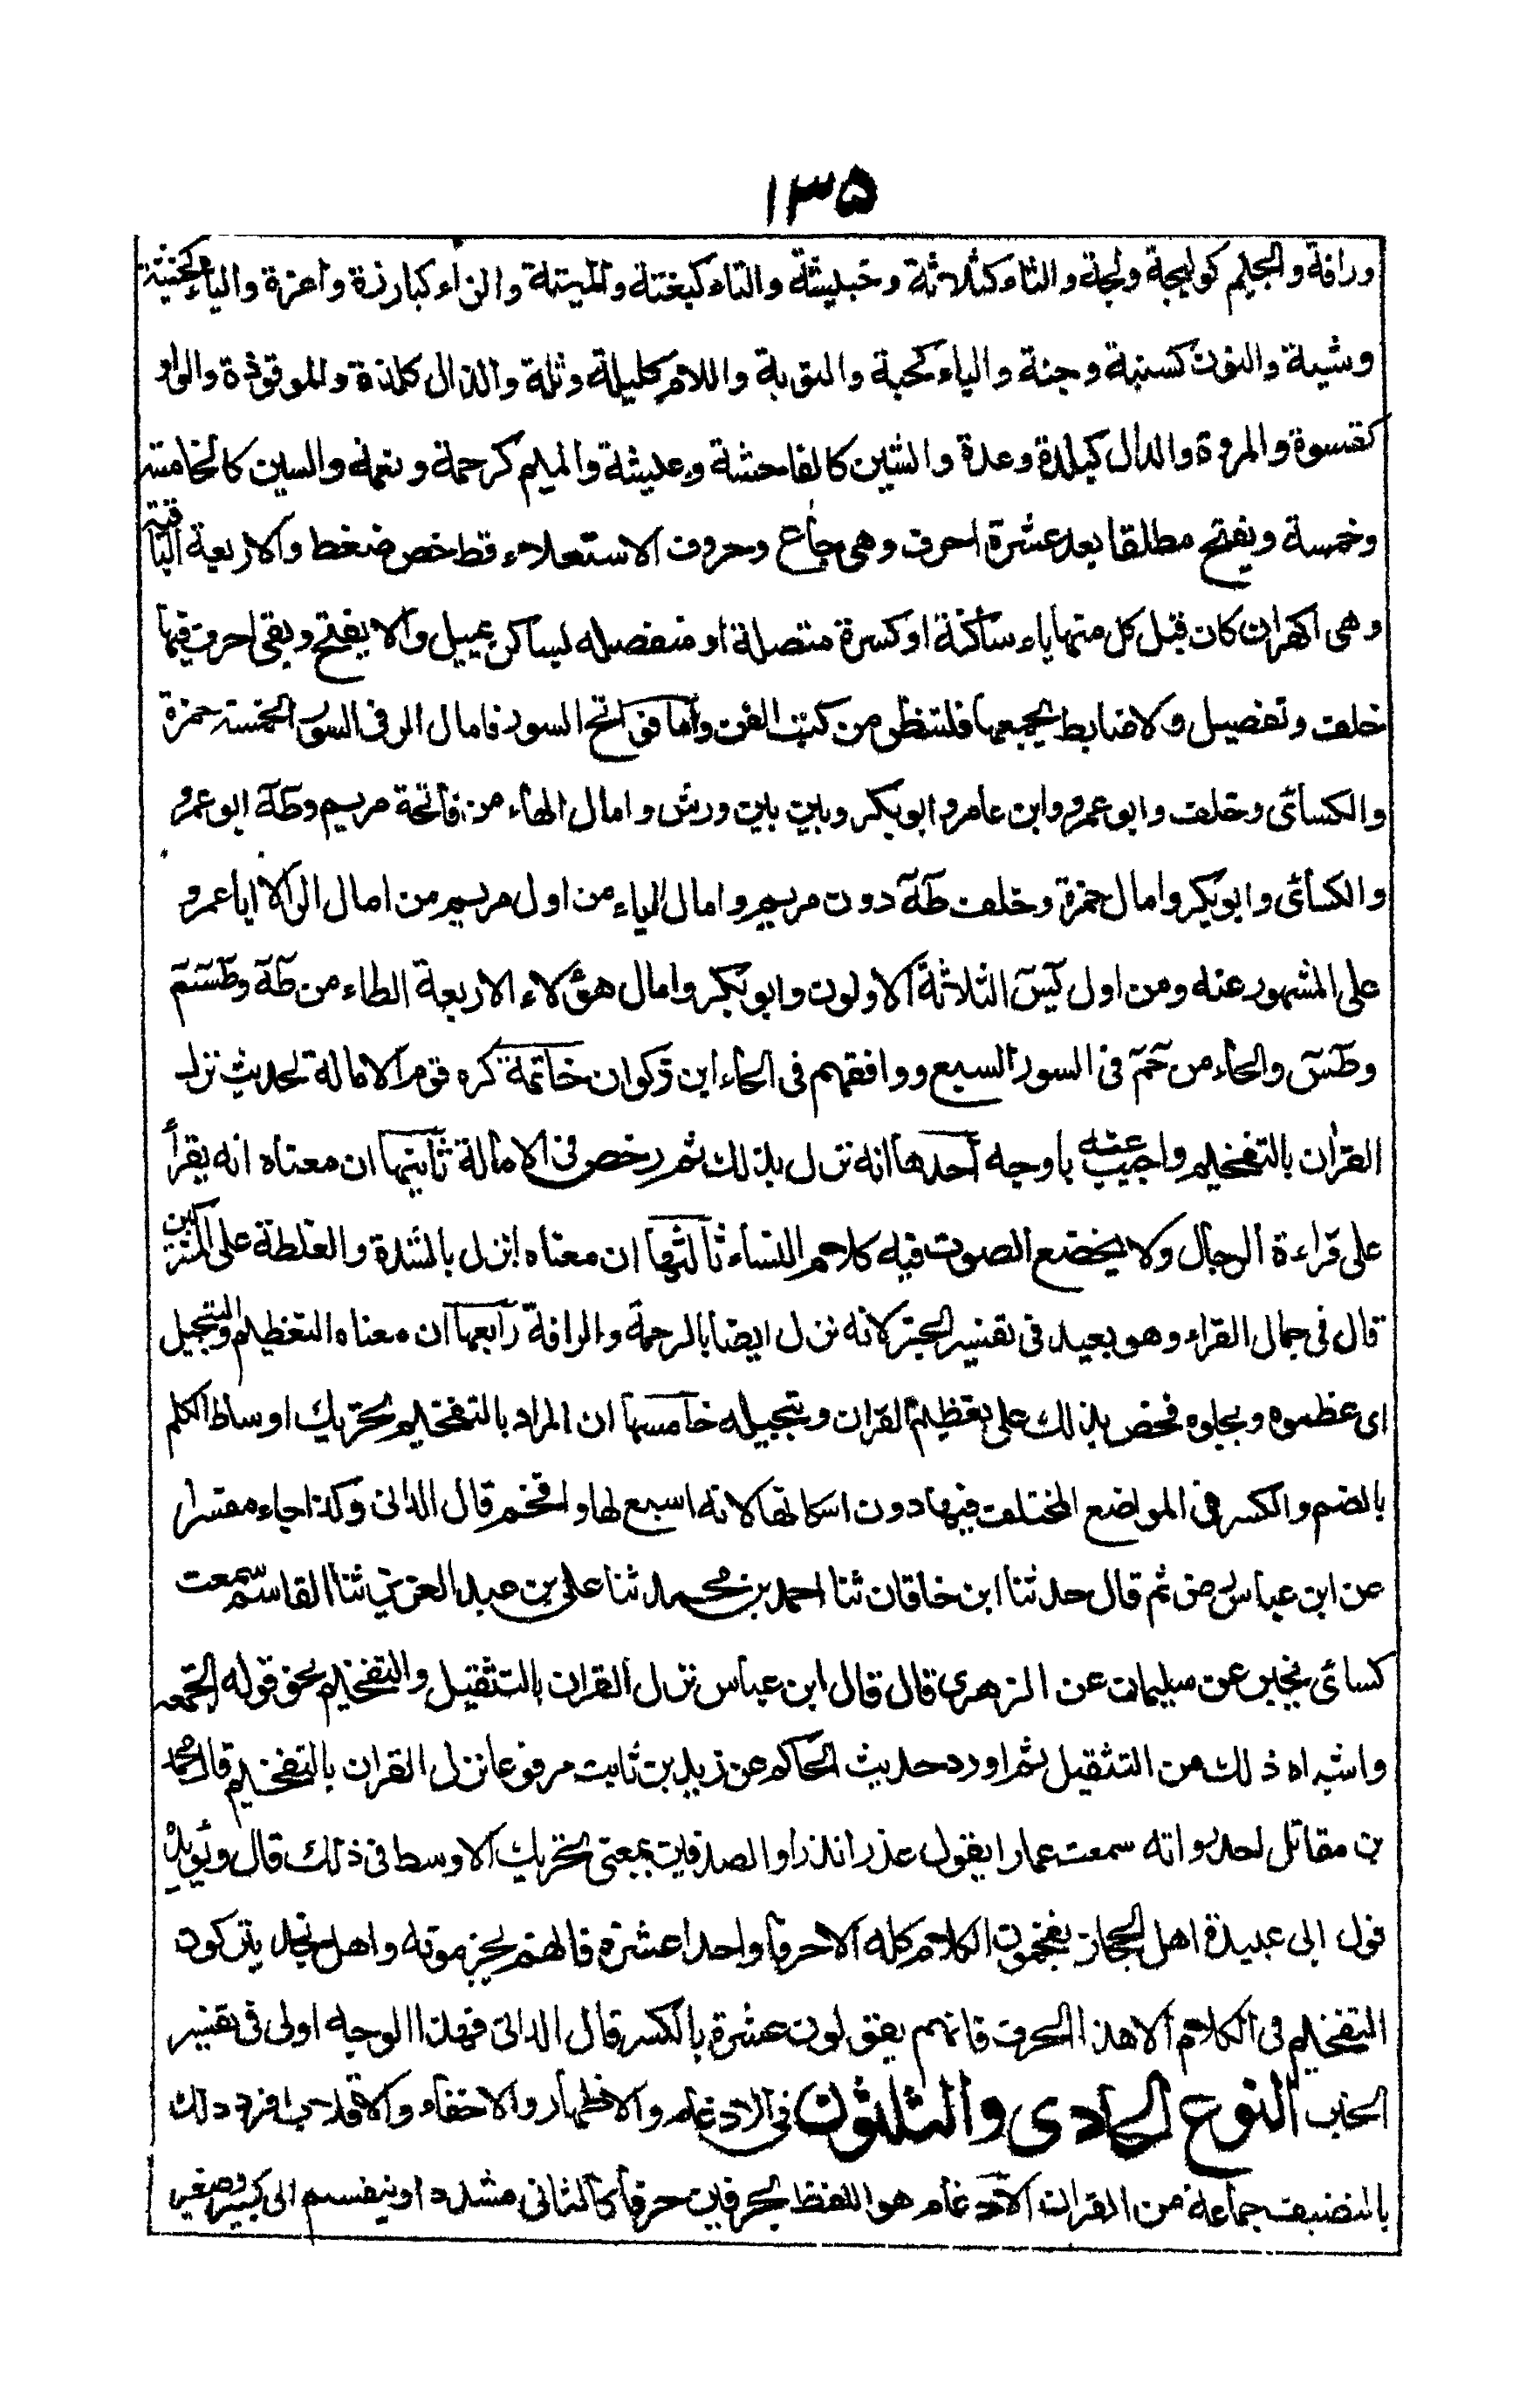 ١٣٥
ورافة والجيم كوليجة ولجة والثاء كثلاثة وخبيثة والتاء كبغتة والميتة والزاء كبارزة واعزة والياء كخشية
وشية والنون كسنة وجنة والباء كحبة والتوبة واللام كليلة وثلة والذال كلذة والموقوذة والواو
كقسوة والمروة والدال كبلدة وعدة والشين كالفاحشة وعيشة والميم كرحمة ونعمة والسين كالخامسة
وخمسة ويفتح مطلقا بعد عشرة احرف وهي جاع وحروف الاستعلاء قط خص ضغط والاربعة الباقية
وهي اكهر ان كان قبل كل منها ياء ساكنة او كسرة متصلة او منفصله بساكن يميل والا يفتح وبقى احرف فيها
خلف وتفصيل ولا ضابط يجمعها فلتنظر من كتب الفن واما فواتح السور فامال الر في السور الخمسة حمزة
والكسائى وخلف وابو عمرو وابن عامر وابو بكر وبين بين ورش وامال الهاء من فاتحة مريم وطه ابو عمرو
والكسائى وابو بكر وامال حمزة وخلف طه دون مريم وامال الياء من اول مريم من امال الر الا ابا عمرو
على المشهور عنه ومن اول يس الثلاثة الاولون وابو بكر وامال هؤلاء الاربعة الطاء من طه وطسم
وطس والحاء من حم في السور السبع ووافقهم في الحاء ابن ذكوان خاتمة كره قوم الامالة لحديث نزل
القرأن بالتفخيم واجيب عنه باوجه أحدها انه نزل بذلك ثم رخص في الامالة ثانيها ان معناه انه يقرأ
على قراءة الرجال ولا يخضع الصوت فيه كلام النساء ثالثها ان معناه انزل بالشدة والغلظة على المشركين
قال في جمال القراء وهو بعيد في تفسير الخبر لانه نزل ايضا بالرحمة والرافة رابعها ان معناه التعظيم والتبجيل
اى عظموه وبجلوه فحض بذلك على تعظيم القران وتبجيله خامسها ان المراد بالتفخيم تحريك اوساط الكلم
بالضم والكسر في المواضع المختلف فيها دون اسكانها لانه اسبع لها وافخم قال الدانى وكذا جاء مفسرا
عن ابن عباس رض ثم قال حدثنا ابن خاقان ثنا احمد بن محمد ثنا على بن عبد العزيز ثنا القاسم سمعت
كسائى يخبر عن سليمان عن الزهرى قال قال ابن عباس نزل القران بالتثقيل والتفخيم نحو قوله الجمعه
واشباه ذلك من التثقيل ثم اورد حديث الحاكم عن زيد بن ثابت مرفوعا نزل القران بالتفخيم قال محمد
بن مقاتل احد رواته سمعت عمارا يقول عذرا نذرا والصدفين بمعنى تحريك الاوسط في ذلك قال ويؤيده
قول ابى عبيدة اهل الحجاز يفخمون الكلام كله الا حرفا واحدا عشرة فانهم يجزمونه واهل نجد يتركون
التفخيم في الكلام الا هذا الحرف فانهم يقولون عشرة بالكسر قال الدانى فهذا الوجه اولى في تفسير
الخبر النوع الحادى والثلثون في الادغام والاظهار والاخفاء والاقلاب افرد ذلك
بالتصنيف جماعة من القراء الادغام هو اللفظ بحرفين حرفا كالثانى مشددا وينقسم الى كبير وصغير